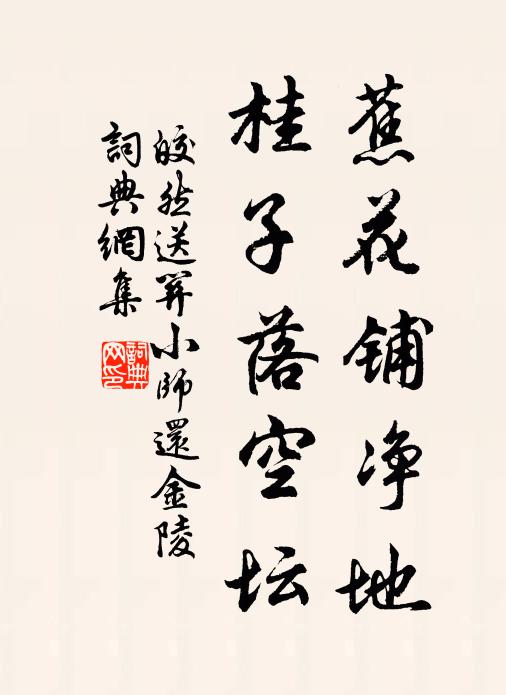 蕉花铺净地
桂子落空坛
皎然送羿小師還金陵
詞典網集
詞典网印